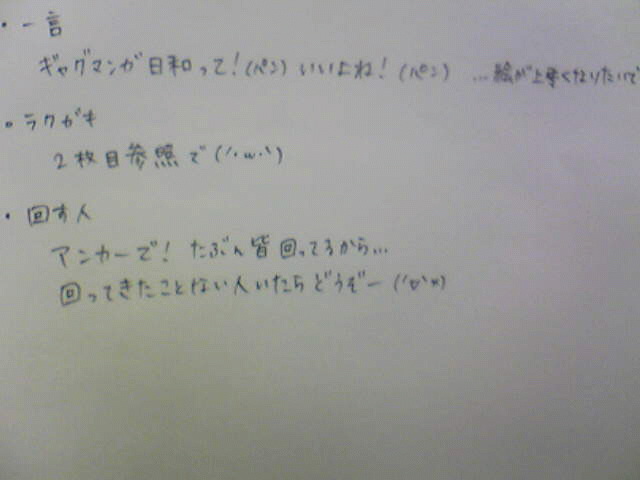 ・一言
ギャグマンガ日和って！(ペン) いいよね！(ペン) …絵が上手くなりたいで
・ラクガキ
2枚目参照で('･ω･`)
・回す人
アンカーで！たぶん皆回ってるから…
回ってきたことない人いたらどうぞー('▽`*)